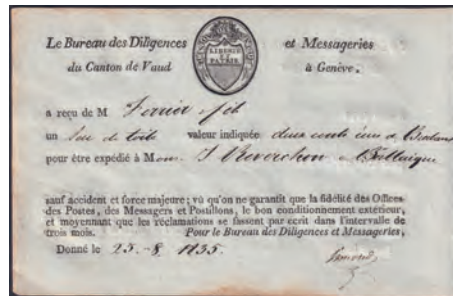 Le Bureau des Diligences et Messageries
du Canton de Vaud à Genève.
CANTON DE VAUD
LIBERTÉ
ET
PATRIE
a reçu de M Ferrier fils
un Sac de toile valeur indiquée deux cents
pour être expédié à Mons. J Reverchon à Ballaigue
sauf accident et force majeure; vû qu'on ne garantit que la fidélité des Offices
des Postes, des Messagers et Postillons, le bon conditionnement extérieur,
et moyennant que les réclamations se fassent par écrit dans l'intervalle de
trois mois. Pour le Bureau des Diligences et Messageries,
Donné le 25-8 1835.